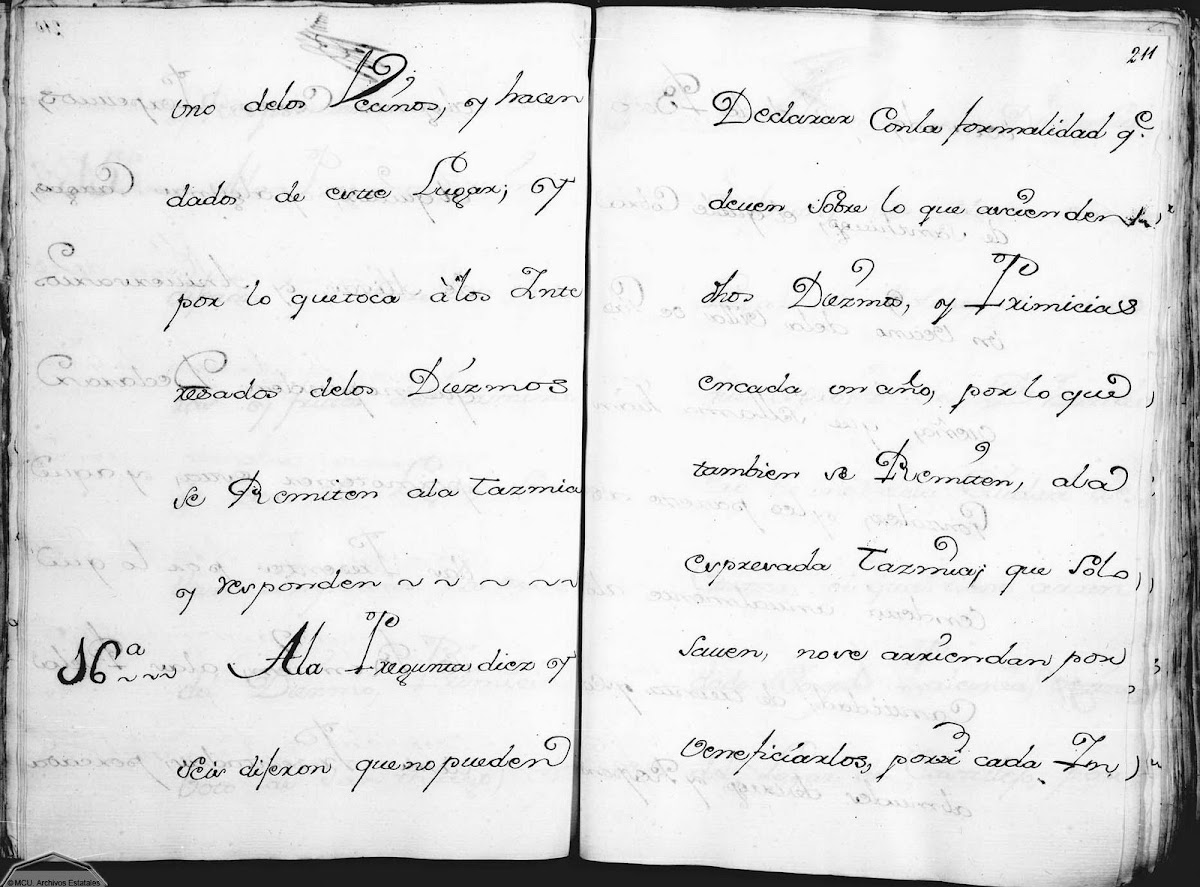 uno delos Vecinos, y hacen
dados de este Lugar; y
por lo que toca â los Inte
resados delos Diézmos
se Remiten ala tazmia
y responden ~ ~ ~ ~ ~
16ª ~~~ Ala Pregunta diez y
seis dijeron que no pueden
211
Declarar Con la formalidad qe.
deven sobre lo que ascienden
dhos Diézmos, y Primicias
en cada un año, por lo que
tambien se Remiten, ala
expresada Tazmia; que solo
saven, no se arriendan por
veneficiarlos, por si cada In
©MCU. Archivos Estatales